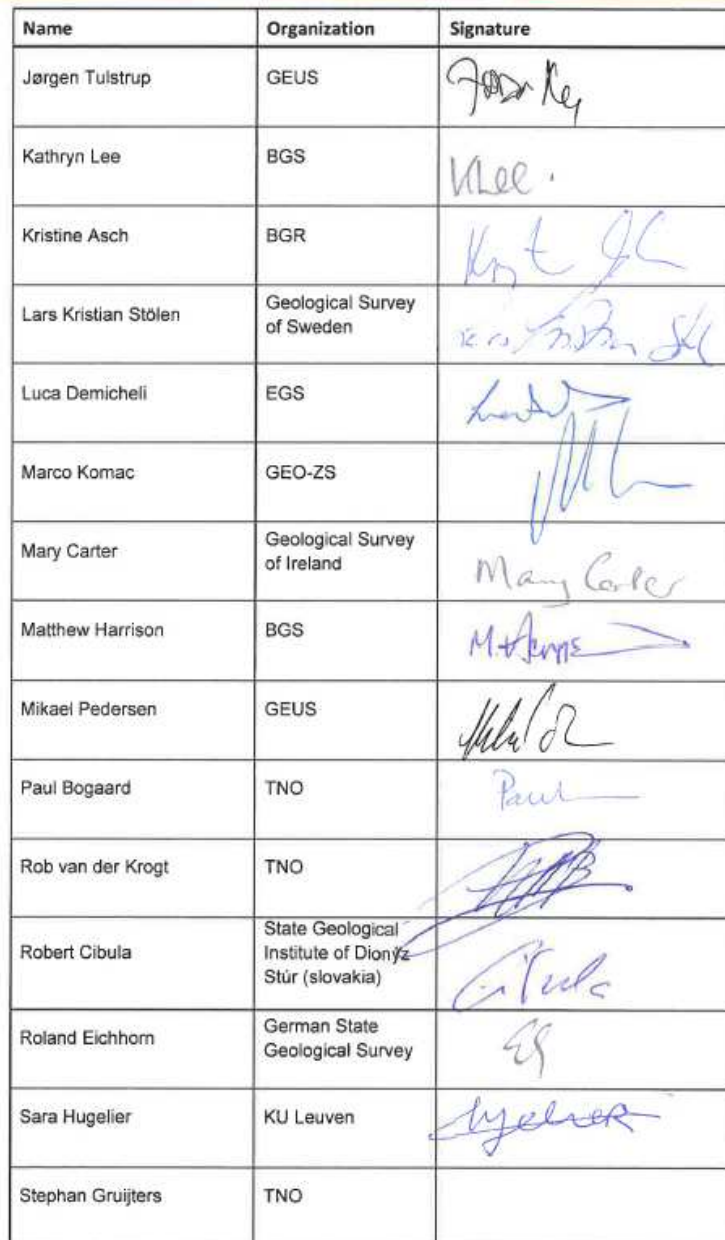 Name Organization Signature
Jørgen Tulstrup GEUS
Kathryn Lee BGS KLee.
Kristine Asch BGR
Lars Kristian Stölen Geological Survey
of Sweden
Luca Demicheli EGS
Marco Komac GEO-ZS
Mary Carter Geological Survey
of Ireland Mary Carter
Matthew Harrison BGS
Mikael Pedersen GEUS
Paul Bogaard TNO Paul
Rob van der Krogt TNO
Robert Cibula State Geological
Institute of Dionýz
Stúr (slovakia) Cibula
Roland Eichhorn German State
Geological Survey
Sara Hugelier KU Leuven
Stephan Gruijters TNO